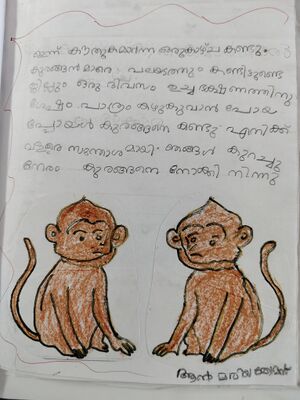 ഇന്ന് കൗതുകമാർന്ന ഒരു കാഴ്ച കണ്ടു.
കുരങ്ങൻമാരെ പലയിടത്തും കണ്ടിട്ടുണ്ടെ
ങ്കിലും ഒരു ദിവസം ഉച്ച ഭക്ഷണത്തിനു
ശേഷം പാത്രം കഴുകുവാൻ പോയ
പ്പോൾ കുരങ്ങനെ കണ്ടു എനിക്ക്
വളരെ സന്തോശമായി. ഞങ്ങൾ കുറച്ചു
നേരം കുരങ്ങനെ നോക്കി നിന്നു
ആൻ മരിയ